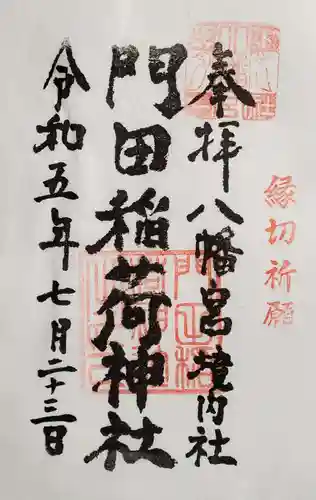 縁切祈願
奉拝 八幡宮境内社
門田稲荷神社
令和五年七月二十三日